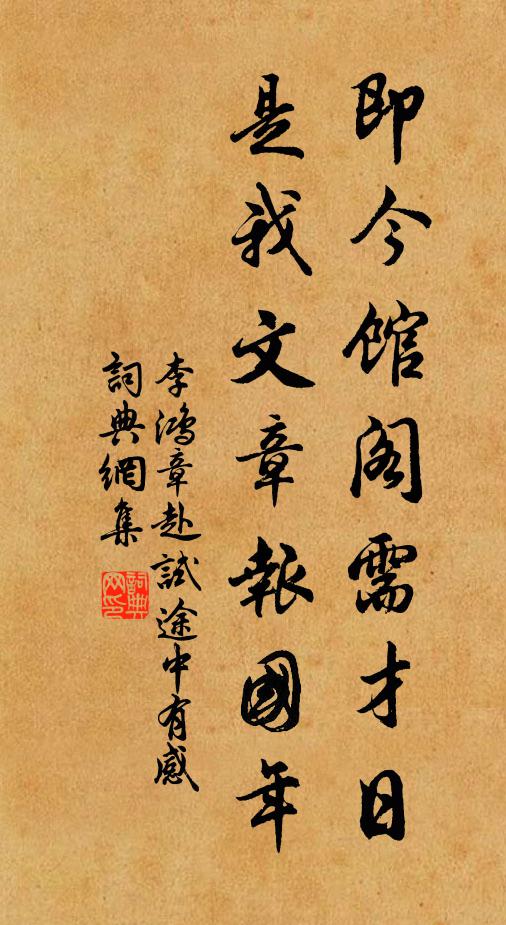 即今館阁需才日
是我文章報國年
李鴻章赴試途中有感
詞典網集
詞典网印